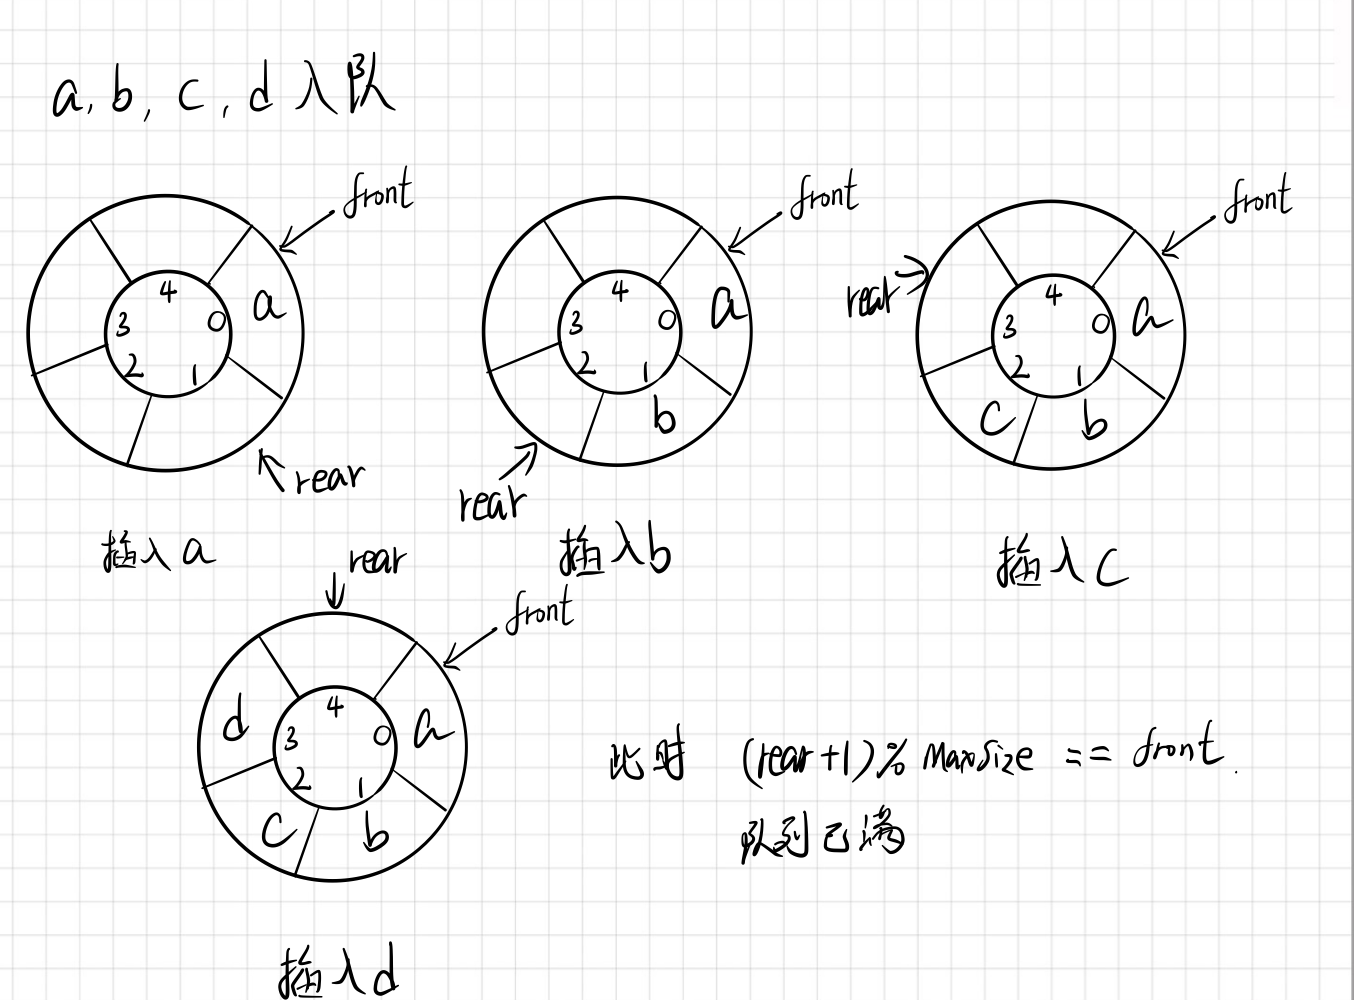 a, b, c, d 入队
front
front
front
4
3
0
a
2
1
rear
插入a
4
3
0
a
2
1
b
rear
插入b
rear
4
3
0
a
2
1
c
b
插入c
rear
front
d
4
3
0
a
2
1
c
b
插入d
此时 (rear+1)%MaxSize == front.
队列已满